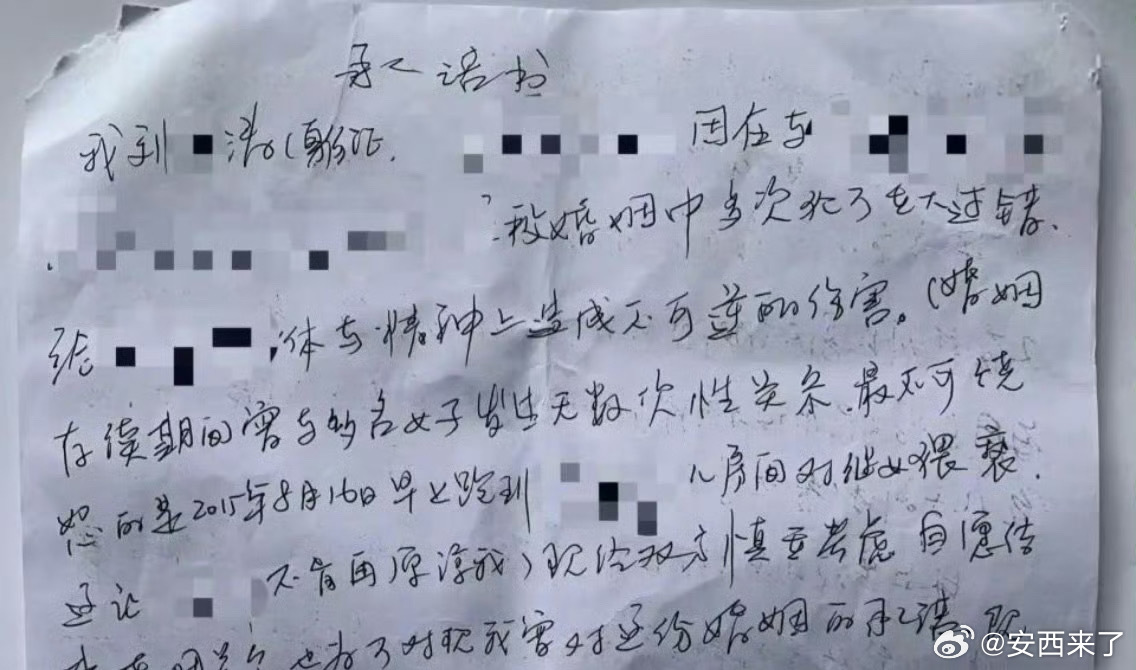 承诺书
我到 因在与
段婚姻中多次犯了重大过错、
给 体与精神上造成不可逆的伤害。(婚姻
存续期间曾与多名女子发生无数次性关系、最不可饶
恕的是2015年8月16日早上跑到 儿房间对继女猥亵、
这让 不肯再原谅我)现经双方慎重考虑自愿结
对现我曾对这份婚姻的承诺
@安西来了